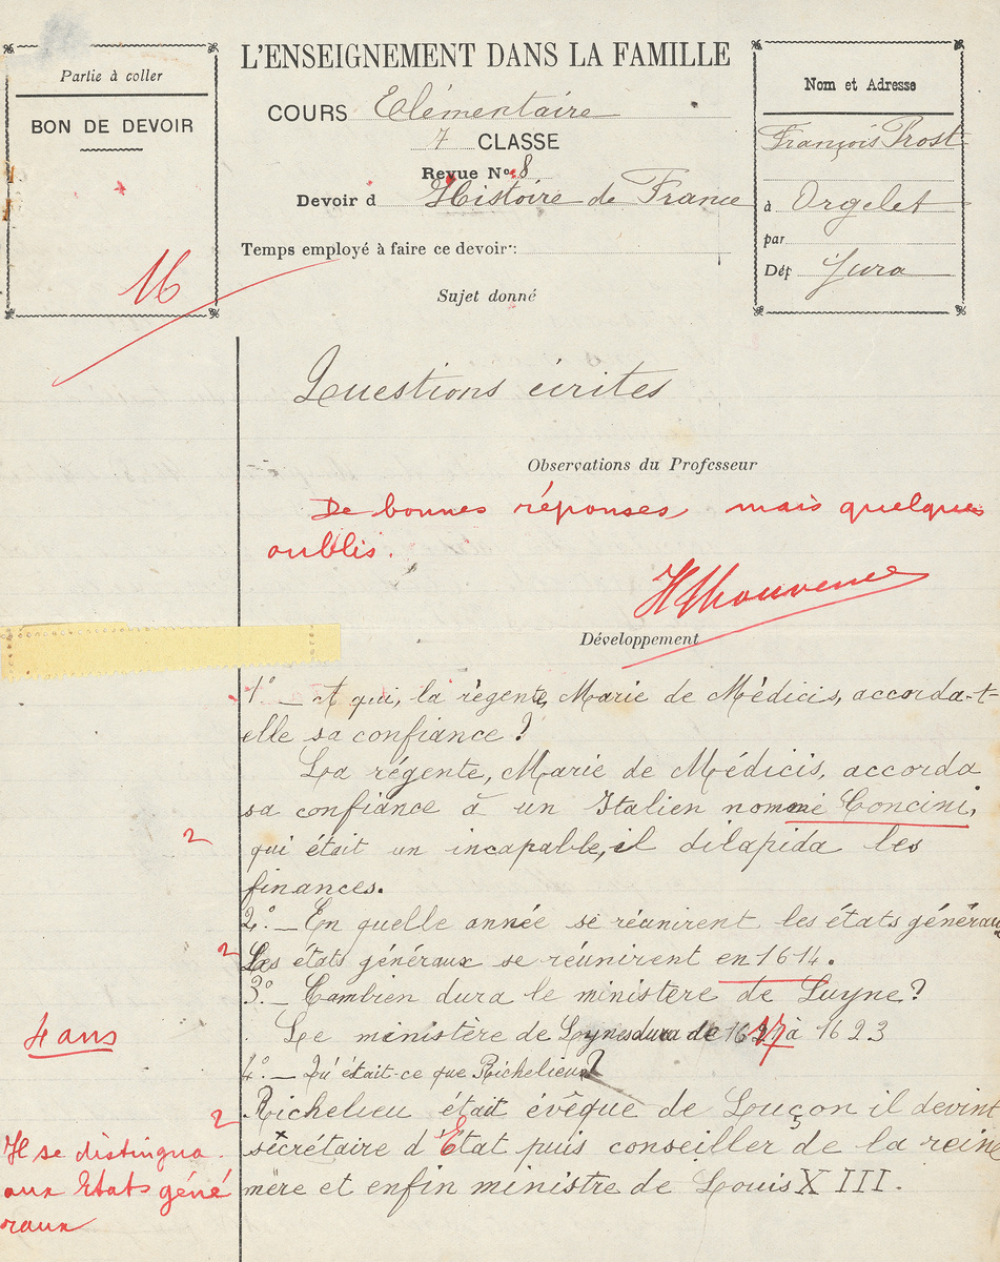 Partie à coller
BON DE DEVOIR
16
L'ENSEIGNEMENT DANS LA FAMILLE
COURS Elémentaire
7 CLASSE
Revue No 8
Devoir d Histoire de France
Temps employé à faire ce devoir :
Sujet donné
Nom et Adresse
François Prost
à Orgelet
par
Dép Jura
Questions écrites
Observations du Professeur
De bonnes réponses, mais quelques
oublis.
Développement
1° _ A qui, la régente, Marie de Médicis, accorda-t-
elle sa confiance ?
La régente, Marie de Médicis, accorda
sa confiance à un Italien nommé Concini,
2
qui était un incapable, il dilapida les
finances.
2° _ En quelle année se réunirent les états généraux
2
Les états généraux se réunirent en 1614.
3° _ Combien dura le ministère de Luyne ?
4 ans
Le ministère de Lynes dura de 1617 à 1623
4° _ Qu'était-ce que Richelieu ?
2
Richelieu était évêque de Louçon il devint
Il se distingua
sècrétaire d'Etat puis conseiller de la reine
aux Etats géné
mère et enfin ministre de Louis XIII.
raux